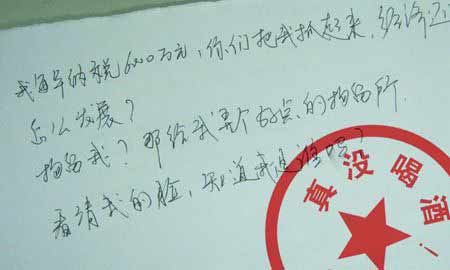 我每年纳税600万元，你们把我抓起来，经济还
怎么发展？
拘留我？那给我弄个好点的拘留所.
看清我的脸，知道我是谁吗？
真没喝酒！